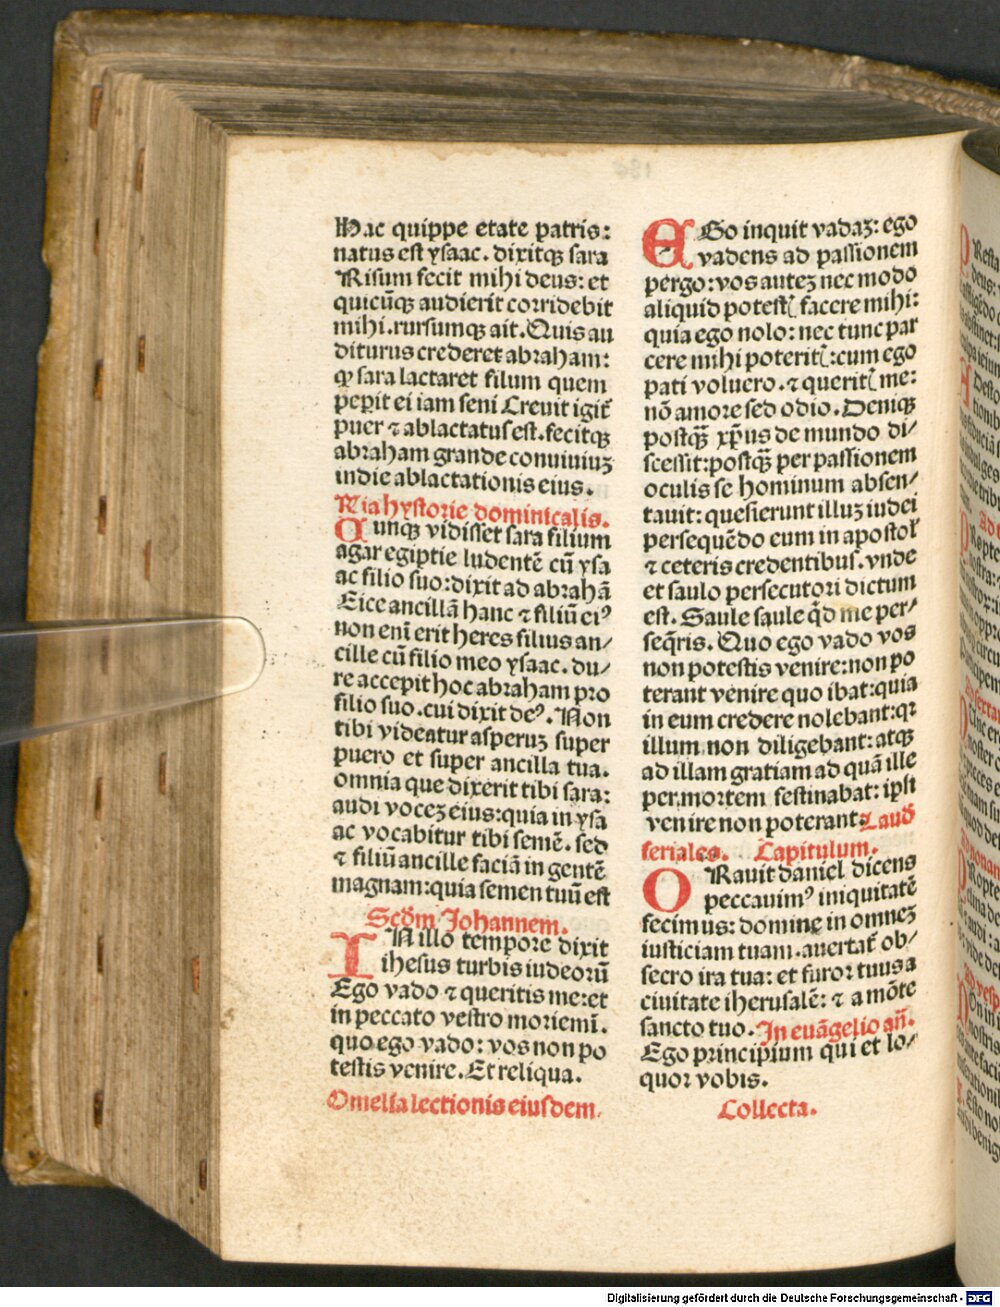 Hac quippe etate patris:
natus est ysaac. dixitqꝫ sara
Risum fecit mihi deus: et
quicūqꝫ audierit corridebit
mihi. rursumqꝫ ait. Quis au
diturus crederet abraham:
ꝙ sara lactaret filium quem
peꝑit ei iam seni Creuit igit᷑
puer ⁊ ablactatus est. fecitqꝫ
abraham grande conuiuiuꝫ
in die ablactationis eius.
Ria hystorie dominicalis.
Cunqꝫ vidisset sara filium
agar egiptie ludentē cū ysa
ac filio suo: dixit ad abrahā
Eice ancillā hanc ⁊ filiū eiꝰ
non enī erit heres filius an/
cille cū filio meo ysaac. du/
re accepit hoc abraham pro
filio suo. cui dixit deꝰ. Non
tibi videatur asperuꝫ super
puero et super ancilla tua.
omnia que dixerit tibi sara:
audi voceꝫ eius: quia in ysa
ac vocabitur tibi semē. sed
⁊ filiū ancille faciā in gentē
magnam: quia semen tuū est
Scd̄m Johannem.
IN illo tempore dixit
ihesus turbis iudeorū
Ego vado ⁊ queritis me: et
in peccato vestro moriemī.
quo ego vado: vos non po
testis venire. Et reliqua.
Omelia lectionis eiusdem.
EGo inquit vadaꝫ: ego
vadens ad passionem
pergo: vos auteꝫ nec modo
aliquid potestꝭ facere mihi:
quia ego nolo: nec tunc par
cere mihi poteritꝭ: cum ego
pati voluero. ⁊ queritꝭ me:
nō amore sed odio. Deniqꝫ
postqꝫ̄ xp̄us de mundo di/
scessit: postqꝫ̄ per passionem
oculis se hominum absen/
tauit: quesierunt illuꝫ iudei
persequēdo eum in apostol᷑
⁊ ceteris credentibus. vnde
et saulo persecutori dictum
est. Saule saule qd̄ me per/
seq̄ris. Quo ego vado vos
non potestis venire: non po
terant venire quo ibat: quia
in eum credere nolebant: qꝛ
illum non diligebant: atqꝫ
ad illam gratiam ad quā ille
per mortem festinabat: ipsi
venire non poterant. Laud᷑
feriales. Capitulum.
ORauit daniel dicens
peccauimꝰ iniquitatē
fecimus: domine in omneꝫ
iusticiam tuam. auertat᷑ ob/
secro ira tua: et furor tuus a
ciuitate iherusalē: ⁊ a mōte
sancto tuo. In euāgelio an̄.
Ego principium qui et lo/
quor vobis.
Collecta.
Digitalisierung gefördert durch die Deutsche Forschungsgemeinschaft - DFG